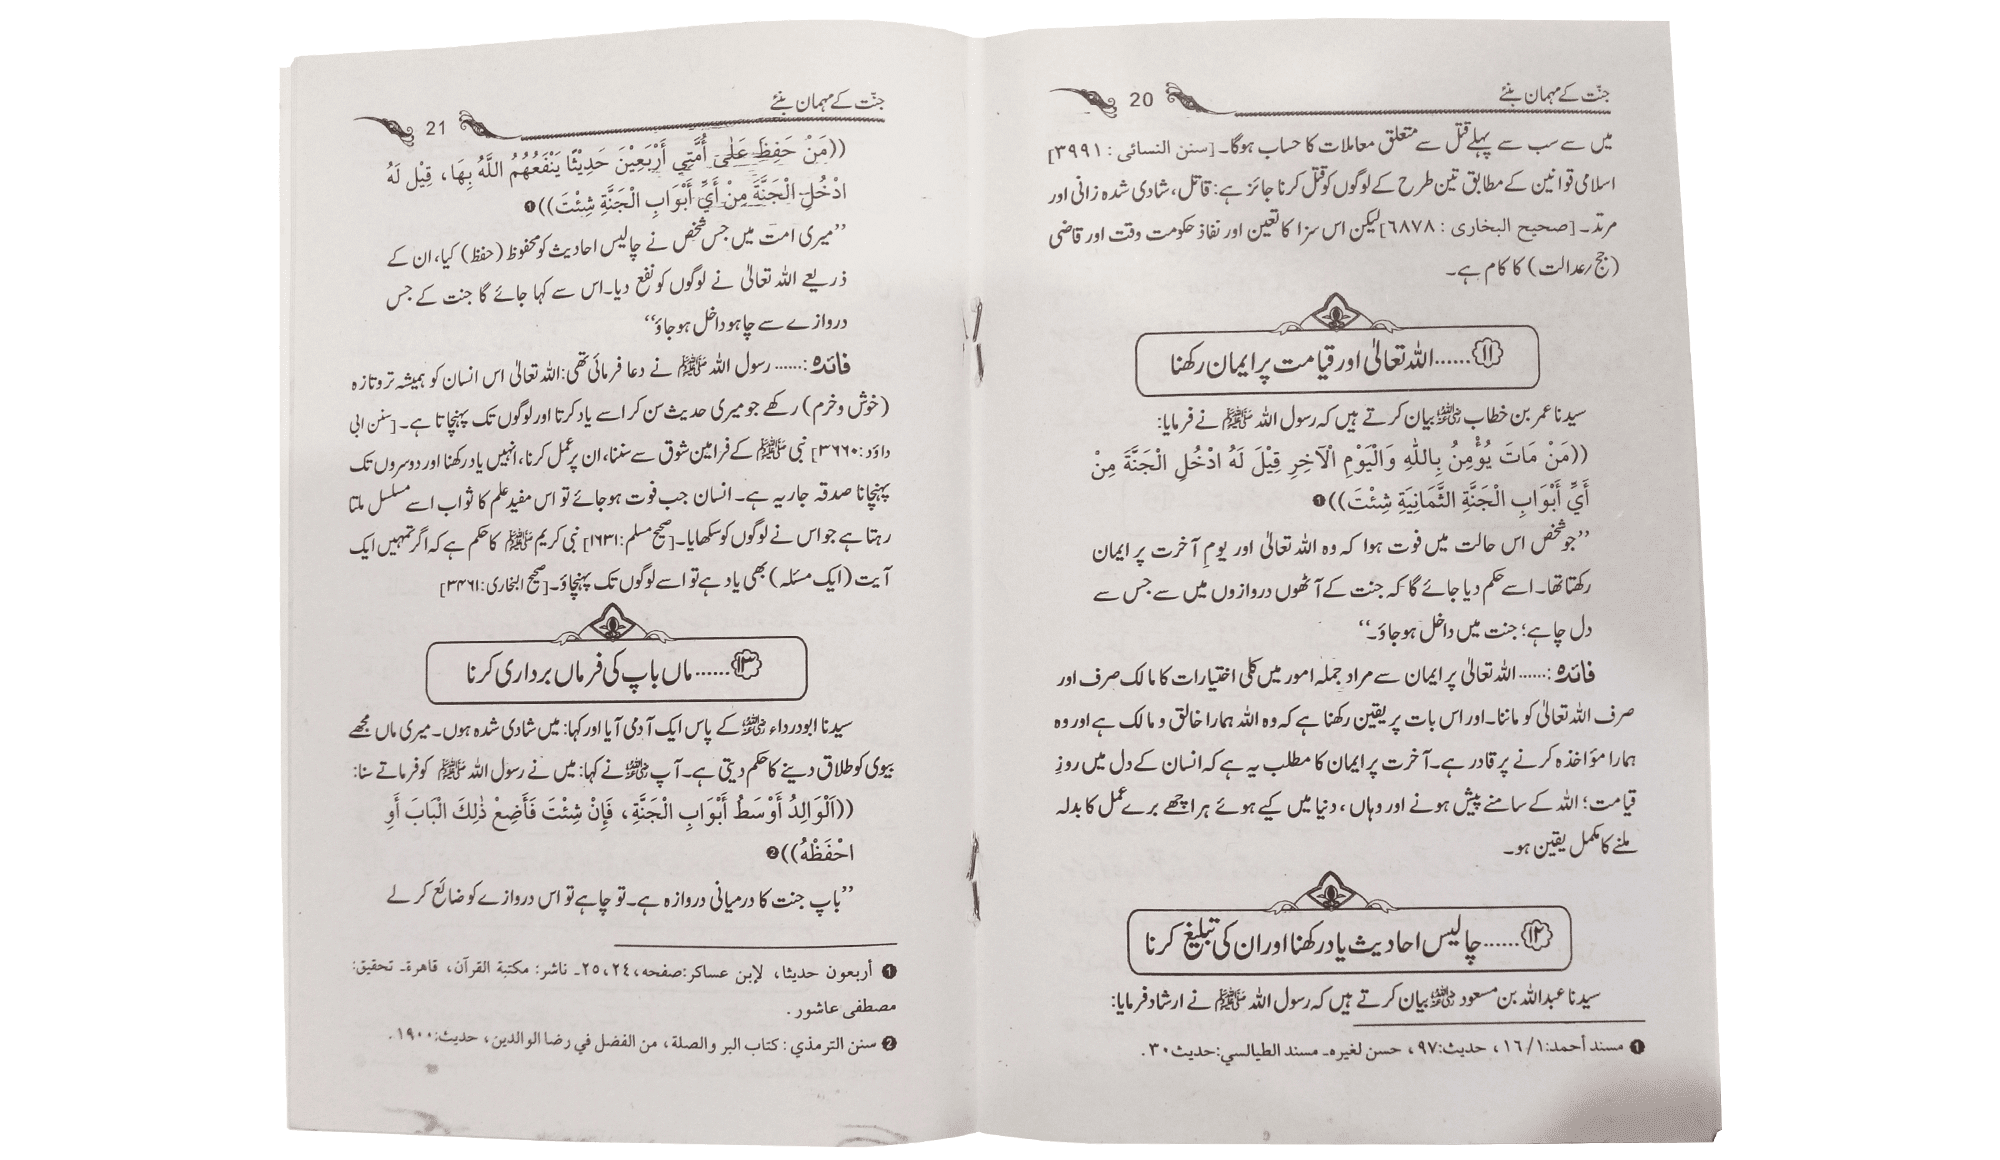 جنّت کے مہمان بنئے
20
میں سے سب سے پہلے قتل سے متعلق معاملات کا حساب ہوگا۔ [سنن النسائی : ۳۹۹۱]
اسلامی قوانین کے مطابق تین طرح کے لوگوں کو قتل کرنا جائز ہے: قاتل، شادی شدہ زانی اور
مرتد۔ [صحیح البخاری : ۶۸۷۸] لیکن اس سزا کا تعین اور نفاذ حکومت وقت اور قاضی
(جج/عدالت) کا کام ہے۔
۱۱......اللہ تعالیٰ اور قیامت پر ایمان رکھنا
سیدنا عمر بن خطاب رضی اللہ عنہ بیان کرتے ہیں کہ رسول اللہ ﷺ نے فرمایا:
((مَنْ مَاتَ يُؤْمِنُ بِاللّٰهِ وَالْيَوْمِ الْآخِرِ قِيْلَ لَهُ ادْخُلِ الْجَنَّةَ مِنْ
أَيِّ أَبْوَابِ الْجَنَّةِ الثَّمَانِيَةِ شِئْتَ))❶
’’جو شخص اس حالت میں فوت ہوا کہ وہ اللہ تعالیٰ اور یومِ آخرت پر ایمان
رکھتا تھا۔ اسے حکم دیا جائے گا کہ جنت کے آٹھوں دروازوں میں سے جس سے
دل چاہے؛ جنت میں داخل ہو جاؤ۔‘‘
فائدہ :...... اللہ تعالیٰ پر ایمان سے مراد جملہ امور میں کلی اختیارات کا مالک صرف اور
صرف اللہ تعالیٰ کو ماننا۔ اور اس بات پر یقین رکھنا ہے کہ وہ اللہ ہمارا خالق و مالک ہے اور وہ
ہمارا مؤاخذہ کرنے پر قادر ہے۔ آخرت پر ایمان کا مطلب یہ ہے کہ انسان کے دل میں روزِ
قیامت؛ اللہ کے سامنے پیش ہونے اور وہاں، دنیا میں کیے ہوئے ہر اچھے برے عمل کا بدلہ
ملنے کا مکمل یقین ہو۔
۱۲......چالیس احادیث یاد رکھنا اور ان کی تبلیغ کرنا
سیدنا عبداللہ بن مسعود رضی اللہ عنہ بیان کرتے ہیں کہ رسول اللہ ﷺ نے ارشاد فرمایا:
❶ مسند أحمد:۱/ ۱۶، حدیث:۹۷، حسن لغیرہ۔ مسند الطیالسي:حدیث ۳۰.
جنّت کے مہمان بنئے
21
((مَنْ حَفِظَ عَلٰى أُمَّتِي أَرْبَعِيْنَ حَدِيْثًا يَنْفَعُهُمُ اللّٰهُ بِهَا، قِيْلَ لَهُ
ادْخُلِ الْجَنَّةَ مِنْ أَيِّ أَبْوَابِ الْجَنَّةِ شِئْتَ))❶
’’میری امت میں جس شخص نے چالیس احادیث کو محفوظ (حفظ) کیا، ان کے
ذریعے اللہ تعالیٰ نے لوگوں کو نفع دیا۔ اس سے کہا جائے گا جنت کے جس
دروازے سے چاہو داخل ہو جاؤ‘‘
فائدہ :...... رسول اللہ ﷺ نے دعا فرمائی تھی: اللہ تعالیٰ اس انسان کو ہمیشہ تروتازہ
(خوش و خرم) رکھے جو میری حدیث سن کر اسے یاد کرتا اور لوگوں تک پہنچاتا ہے۔ [سنن ابی
داؤد: ۳۶۶۰] نبی ﷺ کے فرامین شوق سے سننا، ان پر عمل کرنا، انہیں یاد رکھنا اور دوسروں تک
پہنچانا صدقہ جاریہ ہے۔ انسان جب فوت ہو جائے تو اس مفید علم کا ثواب اسے مسلسل ملتا
رہتا ہے جو اس نے لوگوں کو سکھایا۔ [صحیح مسلم: ۱۶۳۱] نبی کریم ﷺ کا حکم ہے کہ اگر تمہیں ایک
آیت (ایک مسئلہ) بھی یاد ہے تو اسے لوگوں تک پہنچاؤ۔ [صحیح البخاری: ۳۴۶۱]
۱۳......ماں باپ کی فرماں برداری کرنا
سیدنا ابودرداء رضی اللہ عنہ کے پاس ایک آدمی آیا اور کہا: میں شادی شدہ ہوں۔ میری ماں مجھے
بیوی کو طلاق دینے کا حکم دیتی ہے۔ آپ رضی اللہ عنہ نے کہا: میں نے رسول اللہ ﷺ کو فرماتے سنا:
((اَلْوَالِدُ أَوْسَطُ أَبْوَابِ الْجَنَّةِ، فَإِنْ شِئْتَ فَأَضِعْ ذٰلِكَ الْبَابَ أَوِ
احْفَظْهُ))❷
’’باپ جنت کا درمیانی دروازہ ہے۔ تو چاہے تو اس دروازے کو ضائع کر لے
❶ أربعون حدیثا، لإبن عساکر:صفحہ، ۲۴، ۲۵۔ ناشر: مکتبة القرآن، قاهرة۔ تحقیق:
مصطفی عاشور.
❷ سنن الترمذي : کتاب البر والصلة، من الفضل في رضا الوالدین، حدیث: ۱۹۰۰.